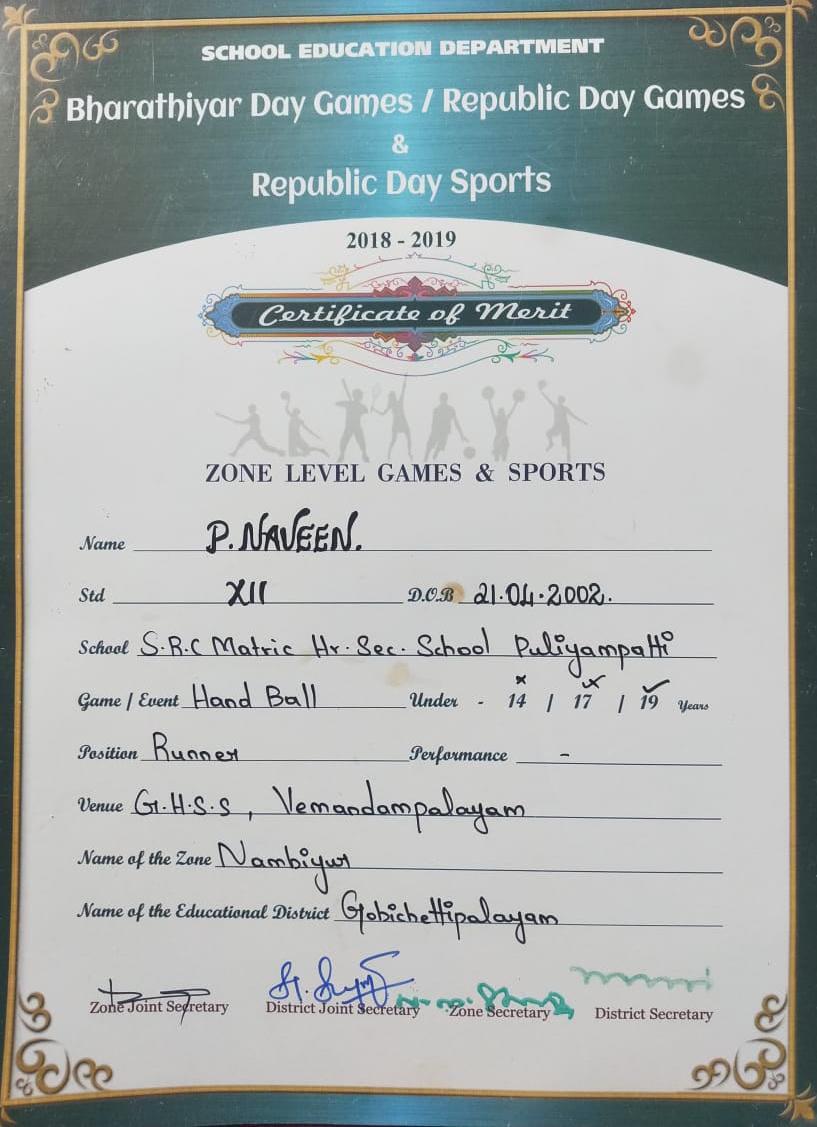 SCHOOL EDUCATION DEPARTMENT
Bharathiyar Day Games / Republic Day Games
&
Republic Day Sports
2018 - 2019
Certificate of Merit
ZONE LEVEL GAMES & SPORTS
Name P. NAVEEN.
Std XII D.O.B 21.04.2002.
School S.R.C Matric Hr. Sec. School Puliyampatti
Game / Event Hand Ball Under - 14 / 17 / 19 Years
Position Runner Performance -
Venue G.H.S.S, Vemandampalayam
Name of the Zone Nambiyur
Name of the Educational District Gobichettipalayam
Zone Joint Secretary District Joint Secretary Zone Secretary District Secretary